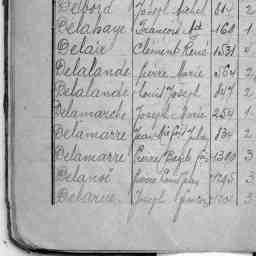 Delbord Joseph Michel 814 2
Delahaye François 160 1
Delair Clément René 1531
Delalande Pierre Marie 364 2
Delalande Louis Joseph 847 2
Delamarche Joseph Marie 254 1
Delamarre Jean 834 2
Delamarre Pierre 1300 3
Delanoë Pierre Louis 1245 3
Delarue Joseph 3